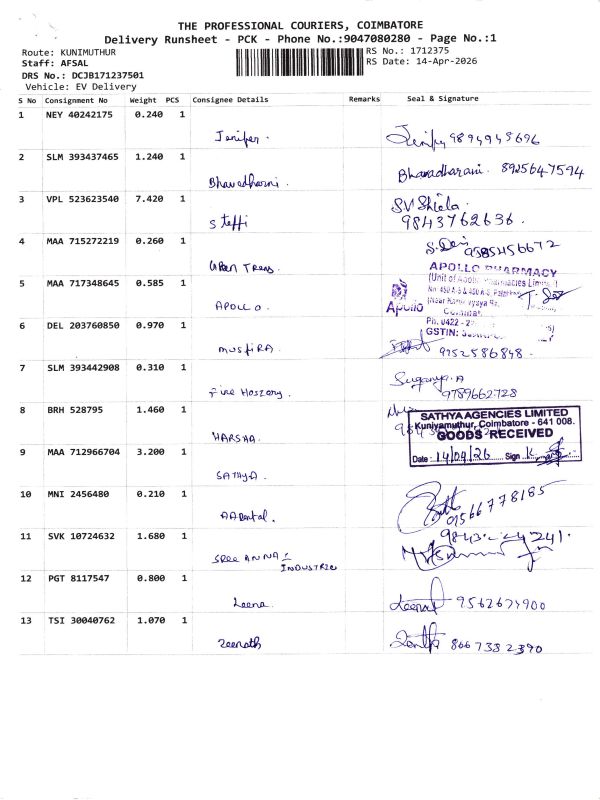 THE PROFESSIONAL COURIERS, COIMBATORE
Delivery Runsheet - PCK - Phone No.:9047080280 - Page No.:1
Route: KUNIMUTHUR
RS No.: 1712375
Staff: AFSAL
RS Date: 14-Apr-2026
DRS No.: DCJB171237501
Vehicle: EV Delivery
S No Consignment No Weight PCS Consignee Details Remarks Seal & Signature
1 NEY 40242175 0.240 1
Jenifer.
2 SLM 393437465 1.240 1
Bhavadharani. 8925647594
Bhavadharni.
3 VPL 523623540 7.420 1
SV Shiela.
Steffi 9843762636.
4 MAA 715272219 0.260 1
Urban Trens.
APOLLO PHARMACY
5 MAA 717348645 0.585 1
Apollo
APOLLO.
6 DEL 203760850 0.970 1
GSTIN:
MUSFIRA. 9152586848.
7 SLM 393442908 0.310 1
Suganya.A
Fine Hoszory. 9789662728
8 BRH 528795 1.460 1
SATHYA AGENCIES LIMITED
Kuniyamuthur, Coimbatore - 641 008.
GOODS RECEIVED
HARSHA.
9 MAA 712966704 3.200 1
Date: 14/04/26 Sign
SATHYA.
10 MNI 2456480 0.210 1
AA Dental.
11 SVK 10724632 1.680 1
SREE ANNAI
INDUSTRIE
12 PGT 8117547 0.800 1
Leena.
13 TSI 30040762 1.070 1
Zeenath 8667332390